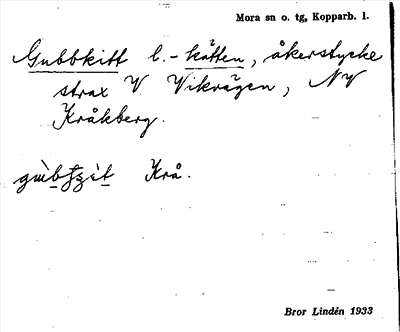 Mora sn o. tg, Kopparb. l.
Gubbkitt l. -kåtten, åkerstycke
strax V Vikvägen, NV
Kråkberg.
Krå.
Bror Lindén 1933